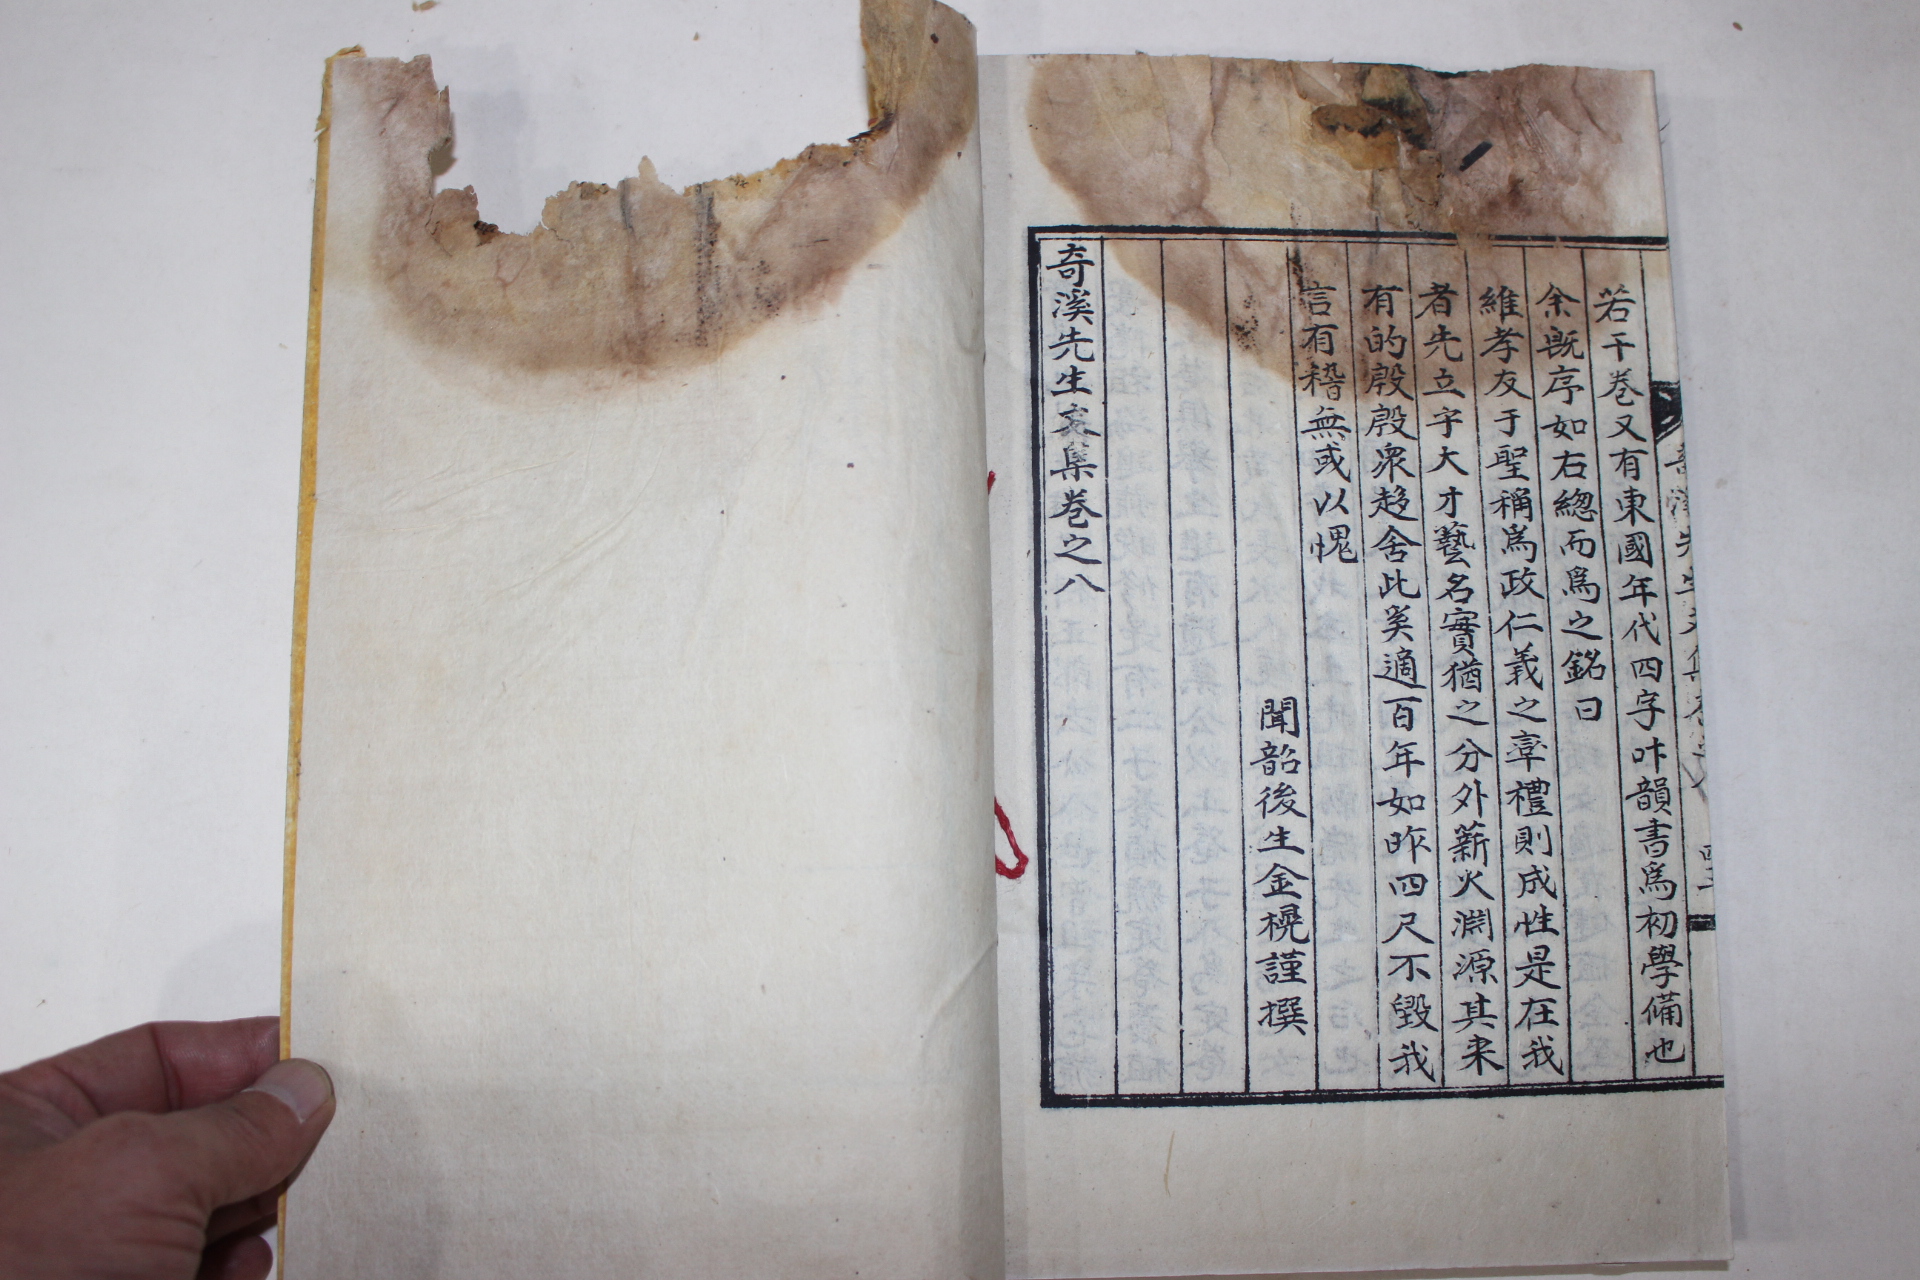 奇溪先生文集卷之八
若干卷又有東國年代四字昨韻書爲初學備也
余旣序如右總而爲之銘曰
維孝友于聖稱爲政仁義之章禮則成性是在我
者先立字大才藝名實猶之分外薪火淵源其来
有的殷殷衆趍舍此奚適百年如昨四尺不毀我
言有稽無或以愧
聞韶後生金榥謹撰
奇溪先生文集卷之八